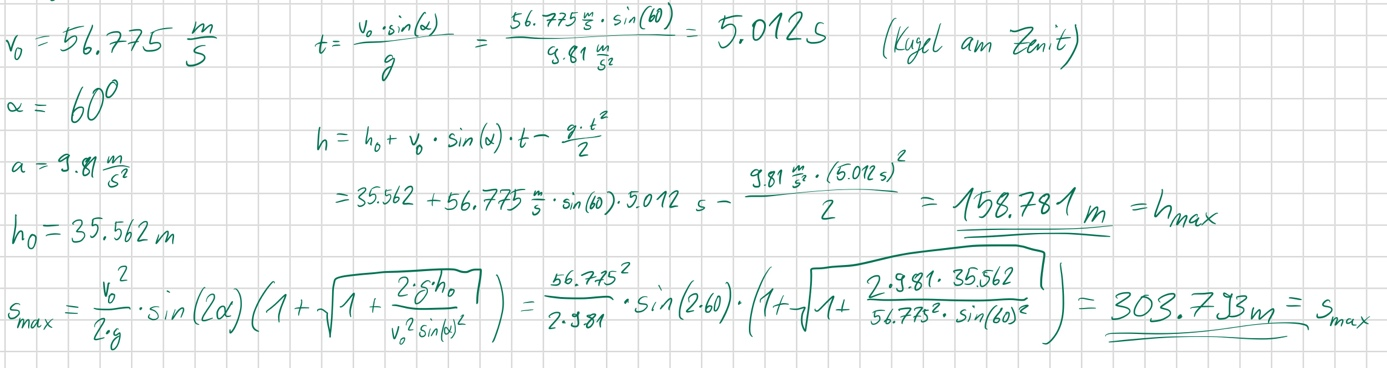 v₀ = 56.775 m/s
t = v₀·sin(α)/g = 56.775 m/s · sin(60)/9.81 m/s² = 5.012 s (Kugel am Zenit)
α = 60⁰
h = h₀ + v₀ · sin(α) · t − g·t²/2
a = 9.81 m/s²
= 35.562 + 56.775 m/s · sin(60) · 5.012 s − 9.81 m/s² · (5.012 s)²/2 = 158.781 m = hmax
h₀ = 35.562 m
smax = v₀²/2·g · sin(2α) (1 + √(1 + 2·g·h₀/v₀² sin(α)²)) = 56.775²/2·9.81 · sin(2·60) · (1 + √(1 + 2·9.81·35.562/56.775² · sin(60)²)) = 303.793 m = smax